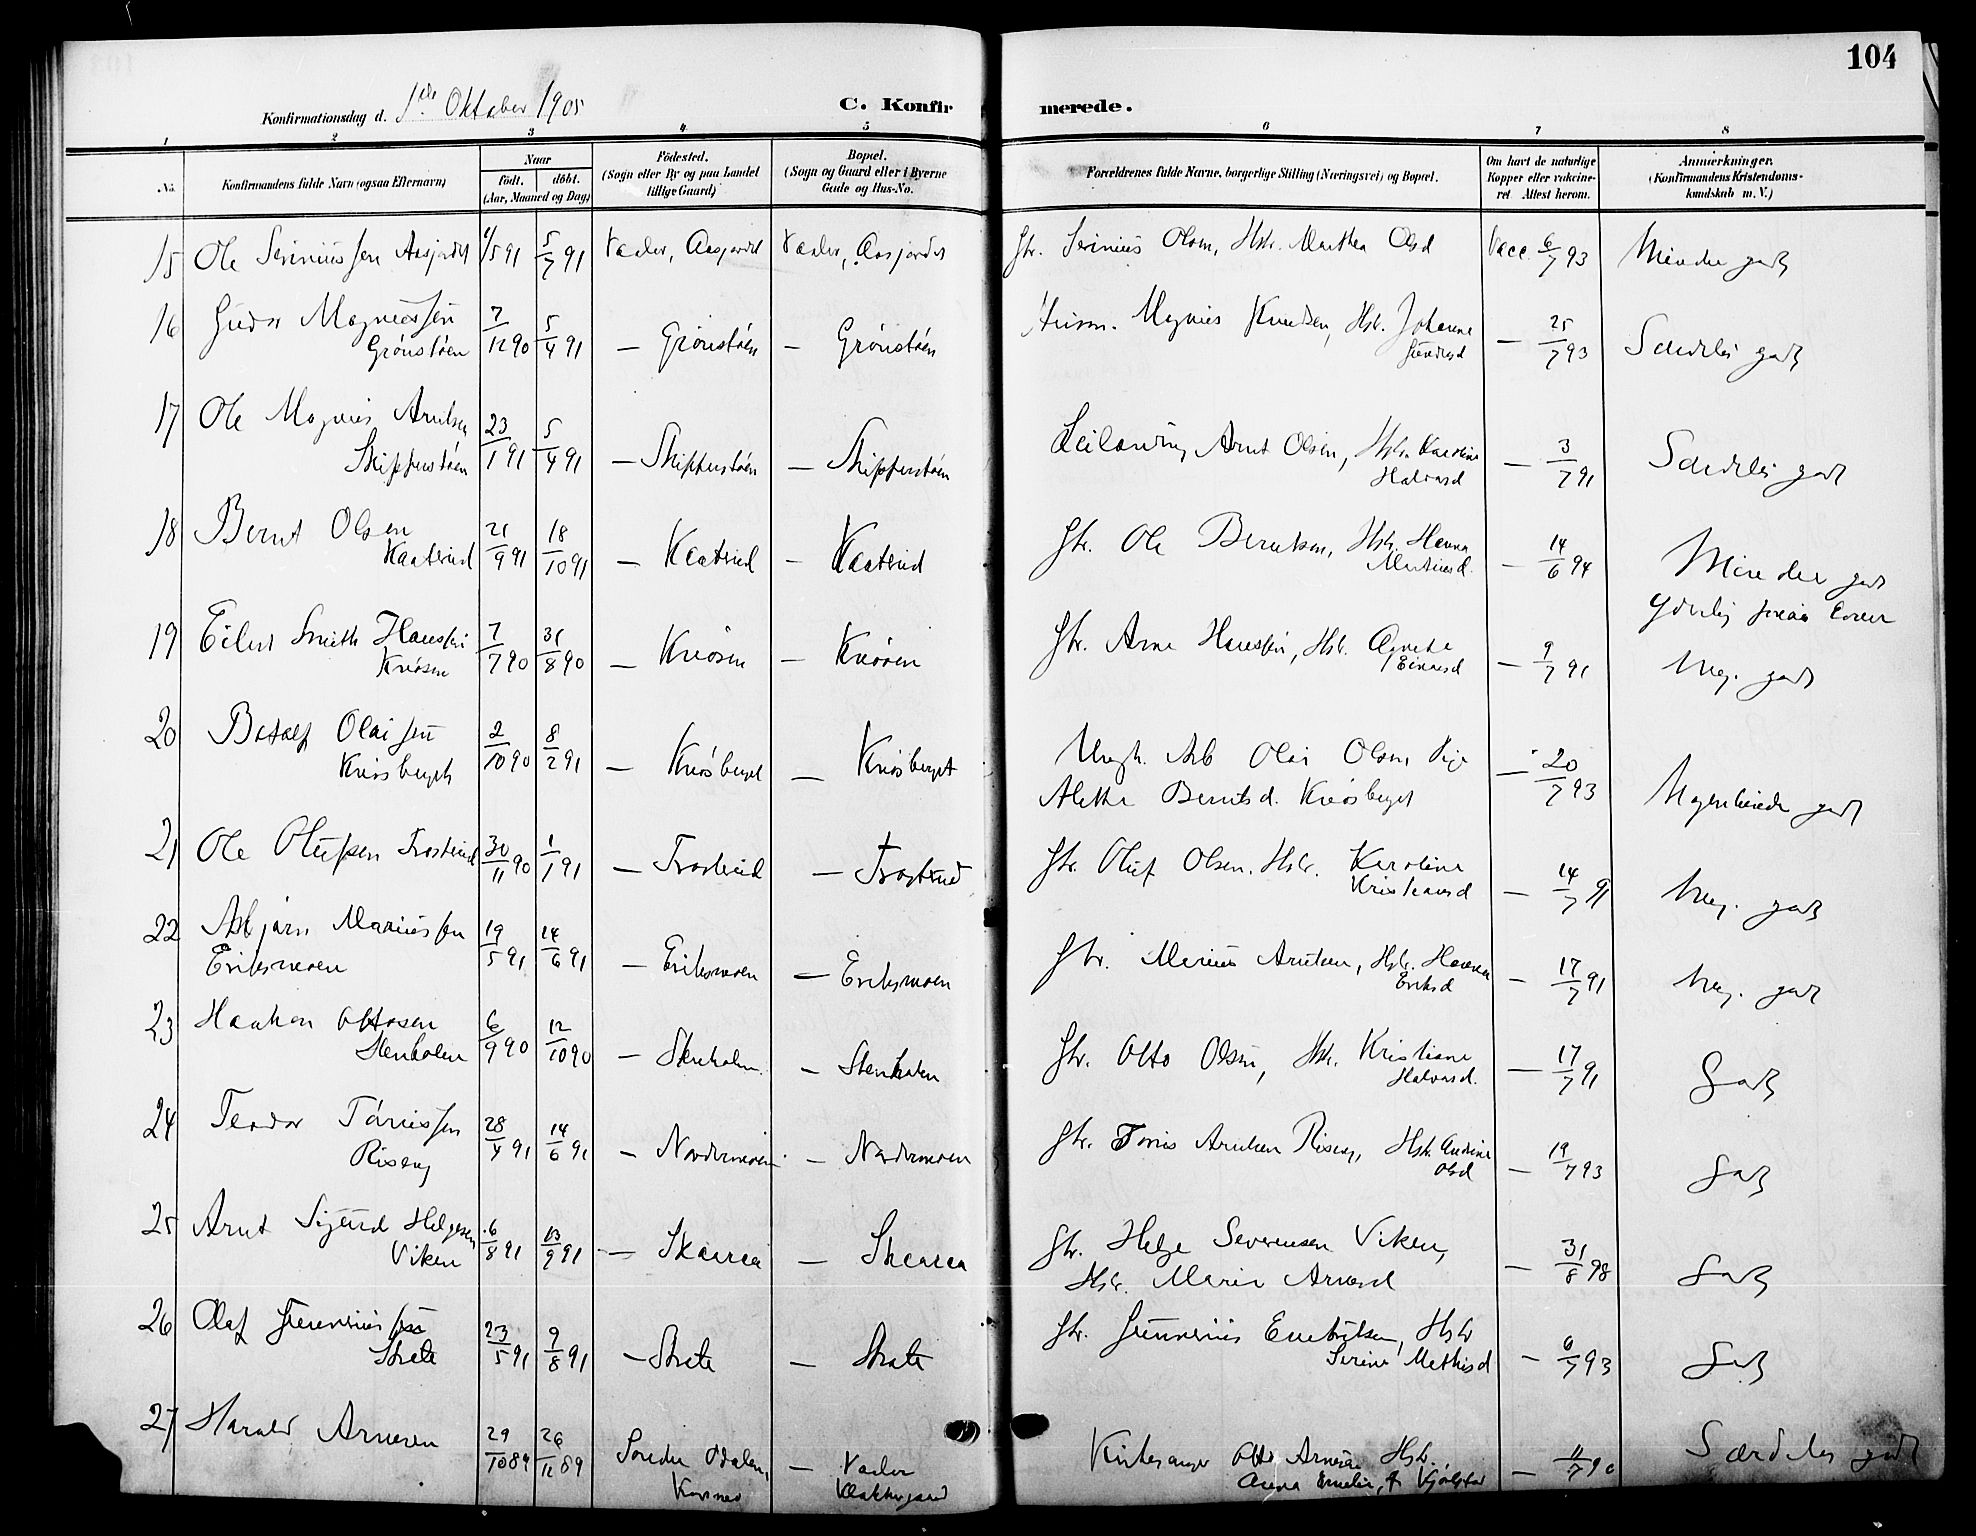 104
Konfirmationsdag d. 1ste Oktober 1905
C. Konfirmerede.
1 2 3 4 5 6 7 8
No.
Konfirmandens fulde Navn (ogsaa Efternavn)
Naar
födt. döbt.
(Aar, Maaned og Dag)
Födested.
(Sogn eller By og paa Landet
tillige Gaard)
Bopæl.
(Sogn og Gaard eller i Byerne
Gade og Hus-No.
Forældrenes fulde Navne, borgerlige Stilling (Næringsvei) og Bopæl.
Om havt de naturlige
Kopper eller vakcine-
ret Attest herom.
Anmærkninger.
(Konfirmandens Kristendoms-
kundskab m. V.)
15 Ole Seriniussen Aasjordet 5/7 91 Vaaler, Aasjordet Vaaler, Aasjordet Gbr. Serinius Olsen, Hstr. Marthea Olsd Vacc. 6/7 93 Mindre godt
16 Magnussen
Grönstöen 7/12 90 5/4 91 — Grönstöen — Grönstöen Husm. Magnus Knudsen, Hstr. Johanne — 25/7 93 Særdeles godt
17 Ole Magnus Arntsen
Skipperstöen 23/1 91 5/4 91 — Skipperstöen — Skipperstöen Arnt Olsen, Hstr. Karoline
Halvorsd — 3/7 91 Særdeles godt
18 Bernt Olsen
Kaatrud 21/9 91 18/10 91 — Kaatrud — Kaatrud Gbr. Ole Berntsen, Hstr. Hanna
Martinusd. — 14/6 94 Mindre godt
19 Eilert Smith Hanssen
Knösen 7/7 90 31/8 90 — Knösen — Knösen Gbr. Arne Hanssen, Hstr. Agnethe
Einarsd — 9/7 91 Meg. godt
20 Olaissen
Knösberget 2/10 90 8/2 91 — Knösberget — Knösberget Ungk. Arb Olai Olsen, Pige
Alethe Berntsd. Knösberget — 20/7 93 godt
21 Ole Olufsen Trostrud 30/11 90 1/1 91 — Trostrud — Trostrud Gbr. Oluf Olsen, Hstr. Karoline
Kristiansd — 14/7 91 Meg. godt
22 Asbjörn Mariussen
Eriksmoen 19/5 91 14/6 91 — Eriksmoen — Eriksmoen Gbr. Marius Arntsen, Hstr. Hanna
Eriksd — 17/7 91 Meg. godt
23 Haakon Ottosen
Stenholen 6/9 90 12/10 90 — Stenholen — Stenholen Gbr. Otto Olsen, Hstr. Kristiane
Halvorsd. — 17/7 91 Godt
24 Teodor Tönissen
Riseng 28/4 91 14/6 91 — Nordermoen — Nordermoen Gbr. Tönis Arntsen Riseng, Hstr. Andrine
Olsd — 19/7 93 Godt
25 Arnt Sigurd Helgesen
Viken 6/8 91 13/9 91 — Skaaraa — Skaaraa Gbr. Helge Severensen Viken,
Hstr. Marie Arnesd — 31/8 98 Godt
26 Olaf Gunneriussen
Strete 23/5 91 9/8 91 — Strete — Strete Gbr. Gunnerius Embretsen, Hstr
Serine Mathisd — 6/7 93 Godt
27 Harald Arnesen 29/10 89 26/12 89 Söndre Odalen, — Vaaler Kirkesanger Otto Arnesen Hstr.
Anna Emelie, f. Kjölstad — 11/7 90 Særdeles godt